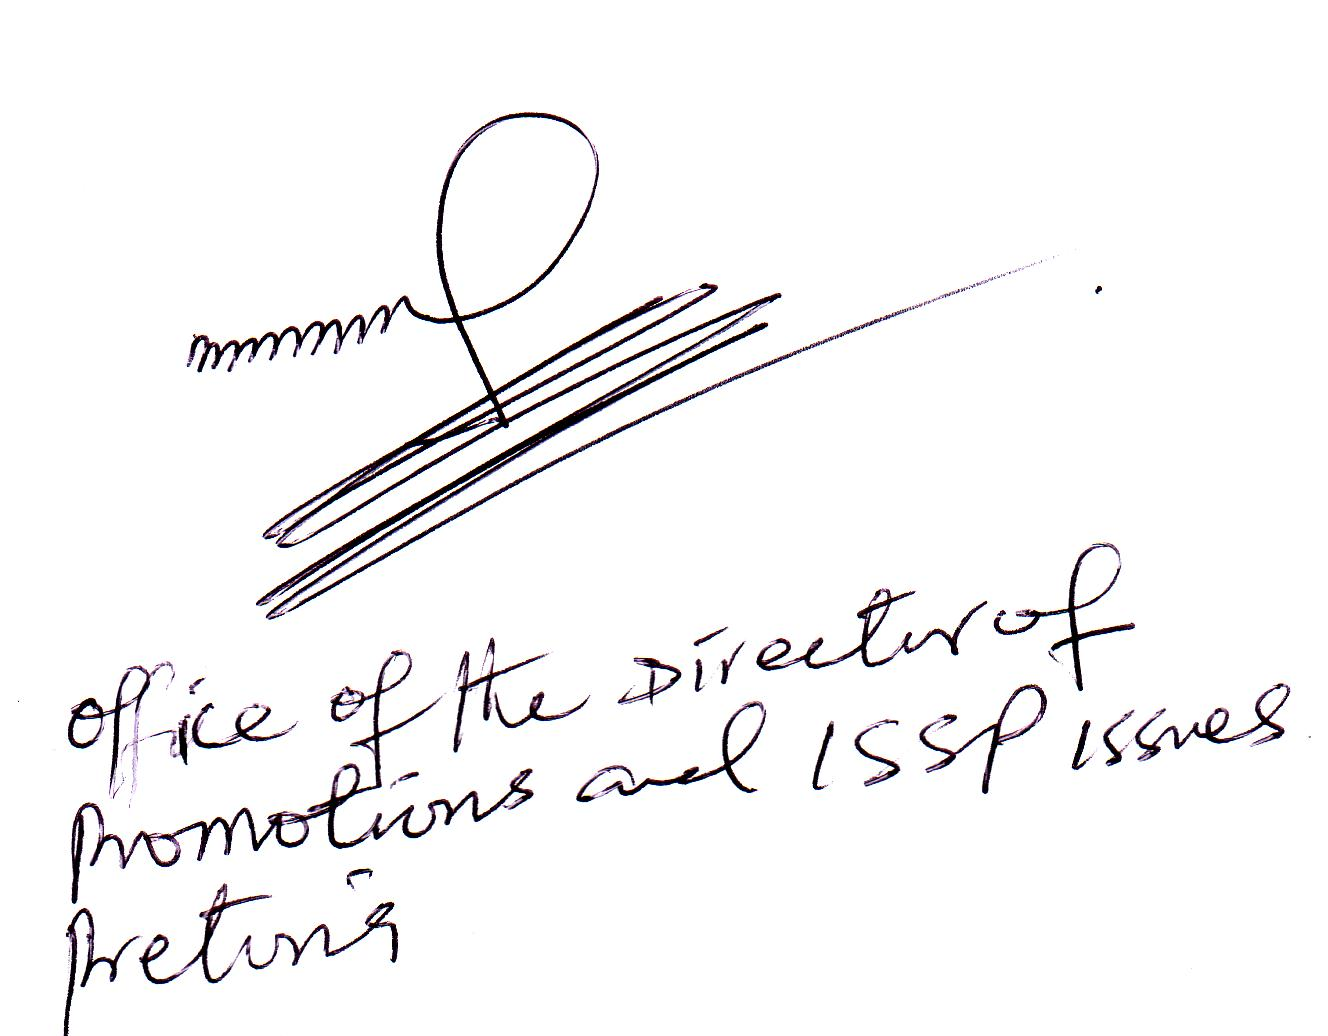 Office of the Director of
Promotions and ISSP issues
Pretoria